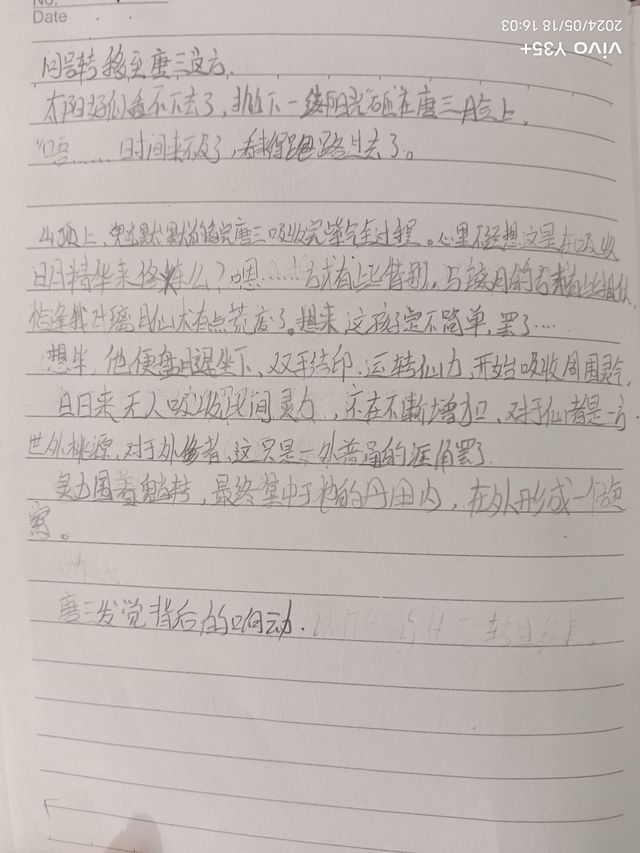 No.
Date
2024/05/18 16:03
vivo Y35+
问号转移至唐三这方.
太阳好似看不下去了,抛下一缕阳光砸在唐三脸上.
"唔……时间来不及了,看来得跑路过去了。
山顶上,默默唐三吸收完紫气全过程。心里不经想这是在吸收
日月精华来修炼么?嗯……方式有些特别,与有些相似
我对仙术有点荒废了。想来这孩子定不简单,罢了…
想毕,他便盘腿坐下,双手结印,运转仙力,开始吸收周围灵气,
日日来无人吸收民间灵力,还在不断增加,对于仙者是一方
世外桃源,对于外修者,这只是一外普通的涯角罢了.
灵力围着转,最终集中于他的丹田内,在外形成一个旋
窝。
唐三发觉背后的响动.